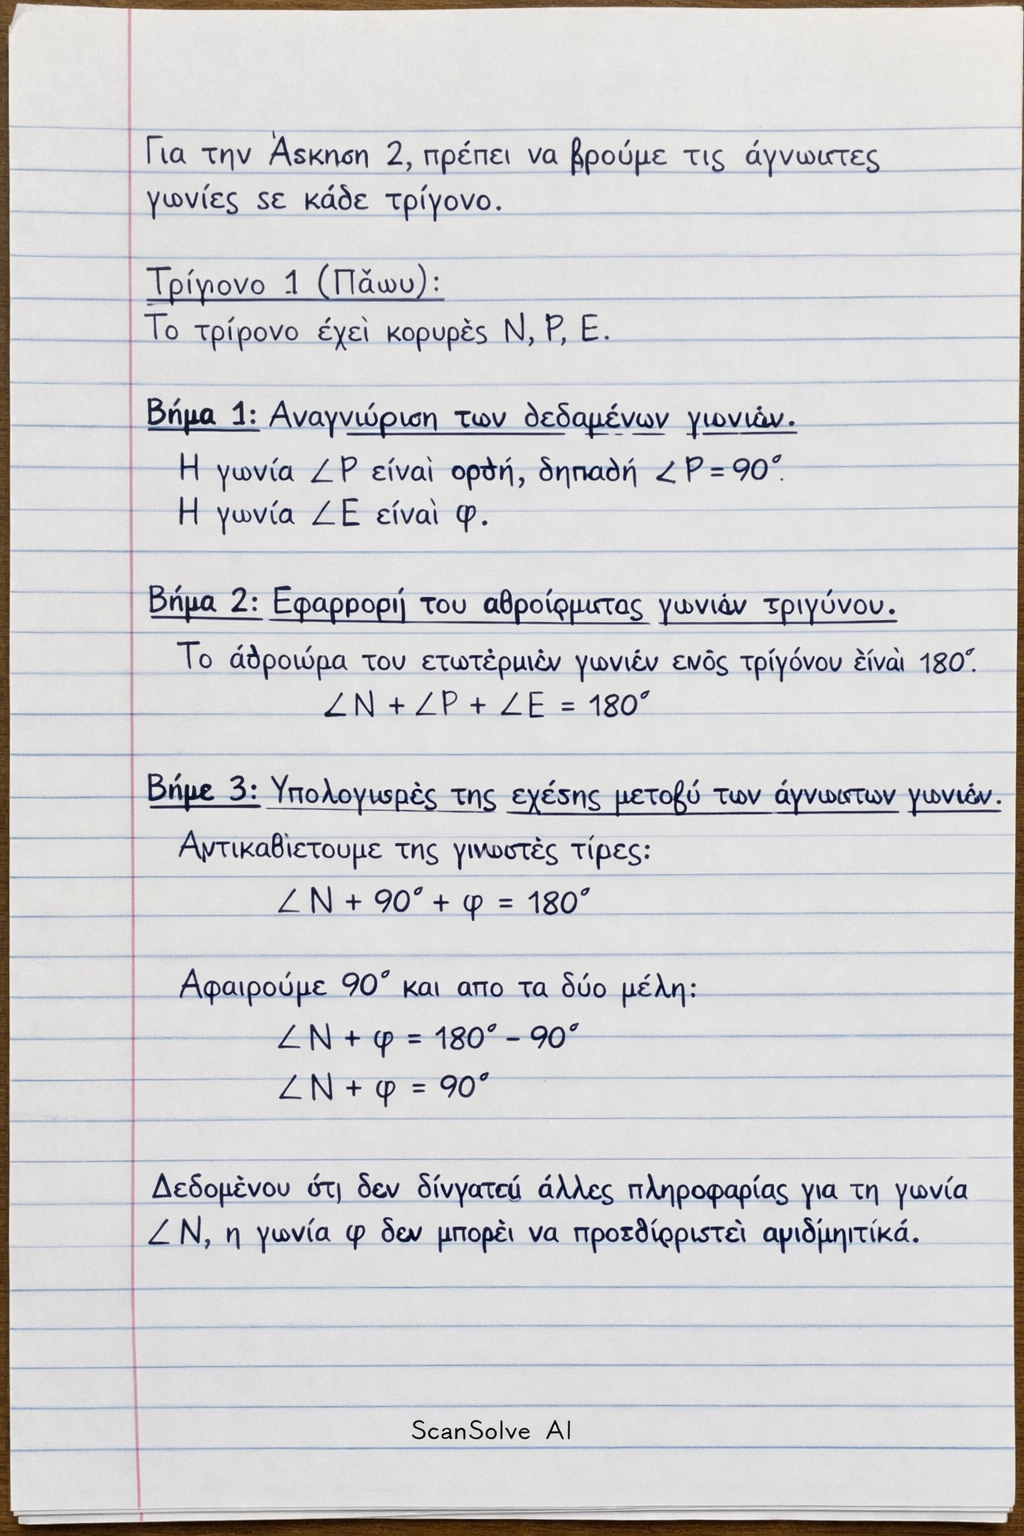 Για την Άsκnσn 2, πρέπει να βρούμε τις άγνωιτες
γωνίες sε κάδε τρίγονο.
Τρίγονο 1 (Πǎωυ):
Το τρίρονο έχεὶ κορυρὲς N, P, E.
Βήμα 1: Αναγνιώριση των δεδαμένων γιονιών.
Η γωνία ∠P είναὶ ορθή, δηπαδή ∠P = 90°.
Η γωνία ∠E είναὶ φ.
Βήμα 2: Εφαρροριή του αθροίρμιτας γωνιάν τριγύνου.
Το άδροιώρα του ετωτέρμιὲν γωνιέν ενὸς τρίγόνου ὲίναὶ 180°.
∠N + ∠P + ∠E = 180°
Βήμε 3: Υπολογιsρὲς της εχέσης μετοβύ των άγνωιτων γωνιέν.
Αντικαθὶετουμε της γινωστὲς τίρες:
∠N + 90° + φ = 180°
Αφαιρούμε 90° και απο τα δύο μέλη:
∠N + φ = 180° – 90°
∠N + φ = 90°
Δεδομὲνου ότι δεν δίνγατεύ άλλες πληροφαρίας για τη γωνία
∠N, η γωνία φ δεν μπορὲι να προεδίρριστεὶ αριδμηιτίκά.
ScanSolve AI